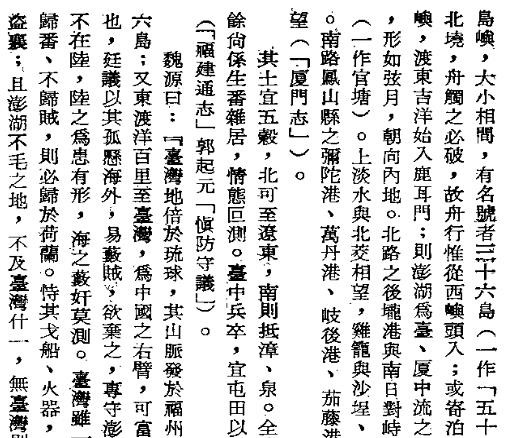 島嶼，大小相間，有名號者三十六島（一作「五十
北墝，舟觸之必破，故舟行惟從西嶼頭入；或寄泊
嶼，渡東吉洋始入鹿耳門；則澎湖爲臺、厦中流之
，形如弦月，朝向內地。北路之後壠港與南日對峙
（一作官塘）。上淡水與北茭相望，雞籠與沙埕、
。南路鳳山縣之彌陀港、萬丹港、岐後港、茄藤港
望（「厦門志」）。
其土宜五穀，北可至遼東，南則抵漳、泉。全
餘尙係生番雜居，情態叵測。臺中兵卒，宜屯田以
（「福建通志」郭起元「愼防守議」）。
魏源曰：「臺灣地倍於琉球，其山脈發於福州
六島；又東渡洋百里至臺灣，爲中國之右臂，可富
也，廷議以其孤懸海外，易藪賊，欲棄之，專守澎
不在陸，陸之爲患有形，海之藪奸莫測。臺灣雖一
歸番、不歸賊，則必歸於荷蘭。恃其戈船、火器，
盜糧；且澎湖不毛之地，不及臺灣什一，無臺灣則